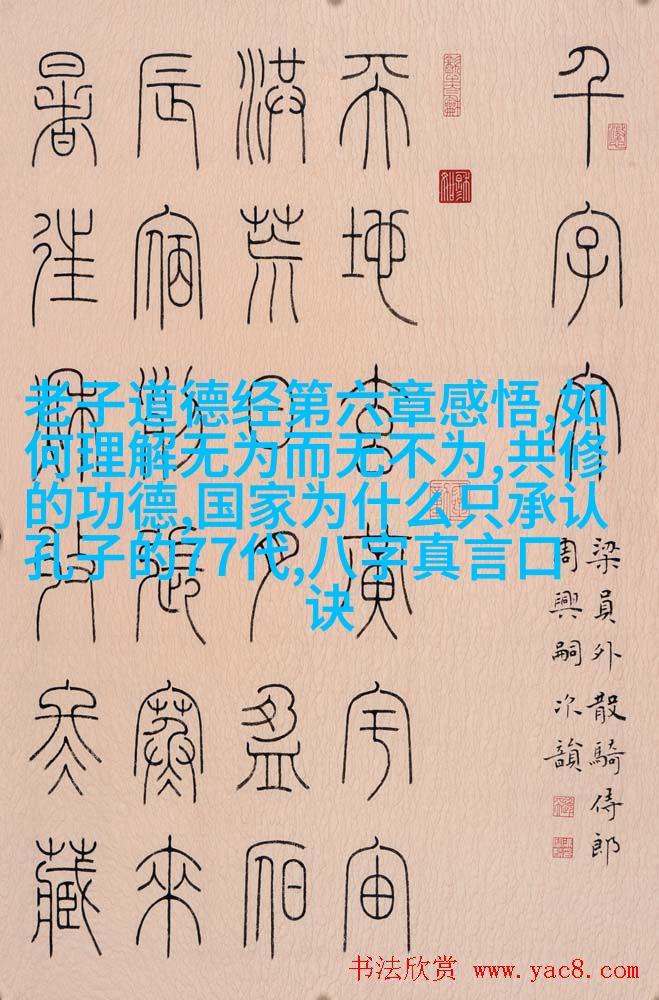 千字文
梁員外散騎侍郎
周興嗣次韻
天地玄黃宇宙
洪荒日月盈昃
辰宿列張寒來
暑往秋收冬藏
老子道德经第六章感悟,如
何理解无为而无不为,共修
的功德,国家为什么只承认
孔子的77代,八字真言口
诀
书法欣赏 www.yac8.com